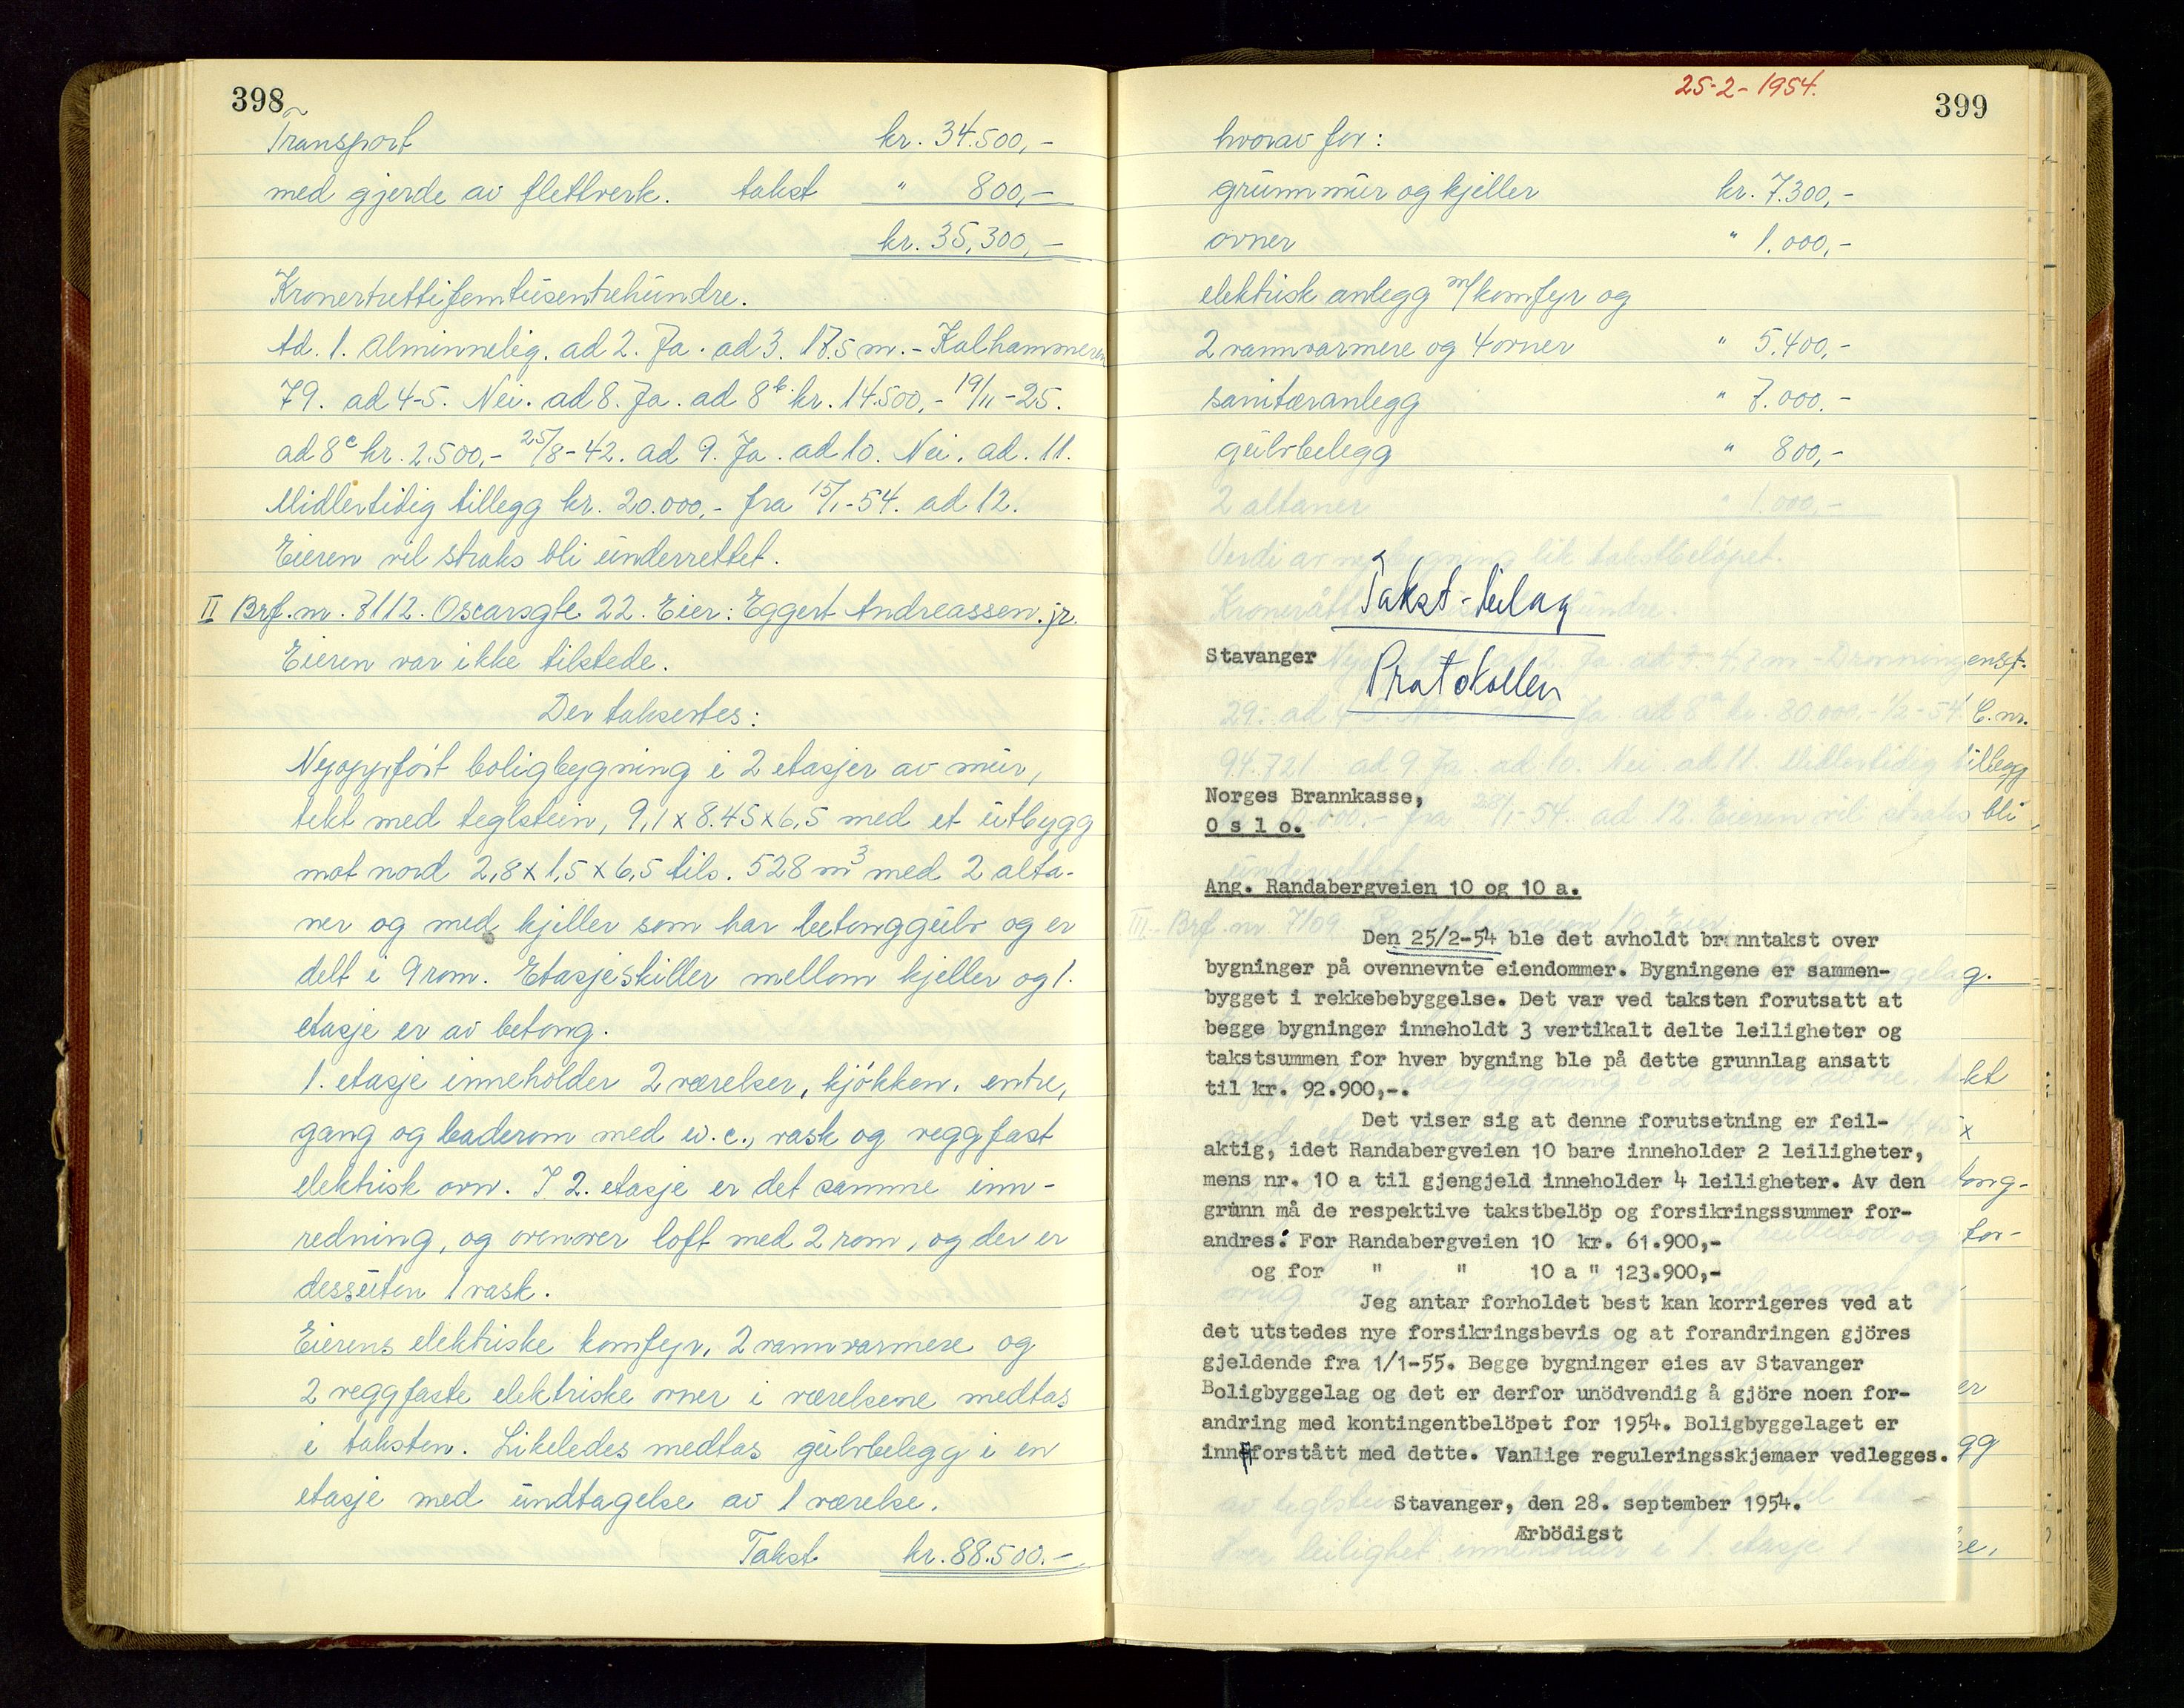 398
Transport kr. 34.500,-
med gjerde av flettverk. takst " 800,-
kr. 35,300,-
Kronertrettifemtusentrehundre.
Ad. 1. Alminnelig. ad 2. Ja. ad 3. 17.5 m. - Kalhammeren
79. ad 4-5. Nei. ad 8. Ja. ad 8b kr. 14.500,- 19/11-25.
ad 8c kr. 2.500,- 25/8-42. ad 9. Ja. ad 10. Nei. ad. 11.
Midlertidig tillegg kr. 20.000,- fra 15/1-54. ad 12.
Eieren vil straks bli underrettet.
II Brf. nr. 7112. Oscarsgte 22. Eier: Eggert Andreassen. jr.
Eieren var ikke tilstede.
Der taksertes:
Nyoppført boligbygning i 2 etasjer av mur,
tekt med teglstein, 9,1 x 8.45 x 6,5 med et utbygg
mot nord 2,8 x 1,5 x 6,5 tils. 528 m3 med 2 alta-
ner og med kjeller som har betonggulv og er
delt i 9 rom. Etasjeskiller mellom kjeller og 1.
etasje er av betong.
1. etasje inneholder 2 værelser, kjøkken, entre,
gang og baderom med w.c., vask og veggfast
elektrisk ovn. I 2. etasje er det samme inn-
redning, og ovenover loft med 2 rom, og der er
dessuten 1 vask.
Eierens elektriske komfyr, 2 vannvarmere og
2 veggfaste elektriske ovner i værelsene medtas
i taksten. Likeledes medtas gulvbelegg i en
etasje med undtagelse av 1 værelse.
Takst kr. 88.500.-
25-2-1954.
399
hvorav for:
grunnmur og kjeller kr. 7.300,-
ovner " 1.000,-
elektrisk anlegg m/komfyr og
2 vannvarmere og 4 ovner " 5.400,-
sanitæranlegg " 7.000.-
gulvbelegg " 800,-
2 altaner " 1.000,-
Takst-bilag
Protokollen
Stavanger
Norges Brannkasse,
Oslo.
Ang. Randabergveien 10 og 10 a.
Den 25/2-54 ble det avholdt branntakst over
bygninger på ovennevnte eiendommer. Bygningene er sammen-
bygget i rekkebebyggelse. Det var ved taksten forutsatt at
begge bygninger inneholdt 3 vertikalt delte leiligheter og
takstsummen for hver bygning ble på dette grunnlag ansatt
til kr. 92.900,-.
Det viser sig at denne forutsetning er feil-
aktig, idet Randabergveien 10 bare inneholder 2 leiligheter,
mens nr. 10 a til gjengjeld inneholder 4 leiligheter. Av den
grunn må de respektive takstbelöp og forsikringssummer for-
andres: For Randabergveien 10 kr. 61.900,-
og for " " 10 a " 123.900,-
Jeg antar forholdet best kan korrigeres ved at
det utstedes nye forsikringsbevis og at forandringen gjöres
gjeldende fra 1/1-55. Begge bygninger eies av Stavanger
Boligbyggelag og det er derfor unödvendig å gjöre noen for-
andring med kontingentbelöpet for 1954. Boligbyggelaget er
innforstått med dette. Vanlige reguleringsskjemaer vedlegges.
Stavanger, den 28. september 1954.
Ærbödigst